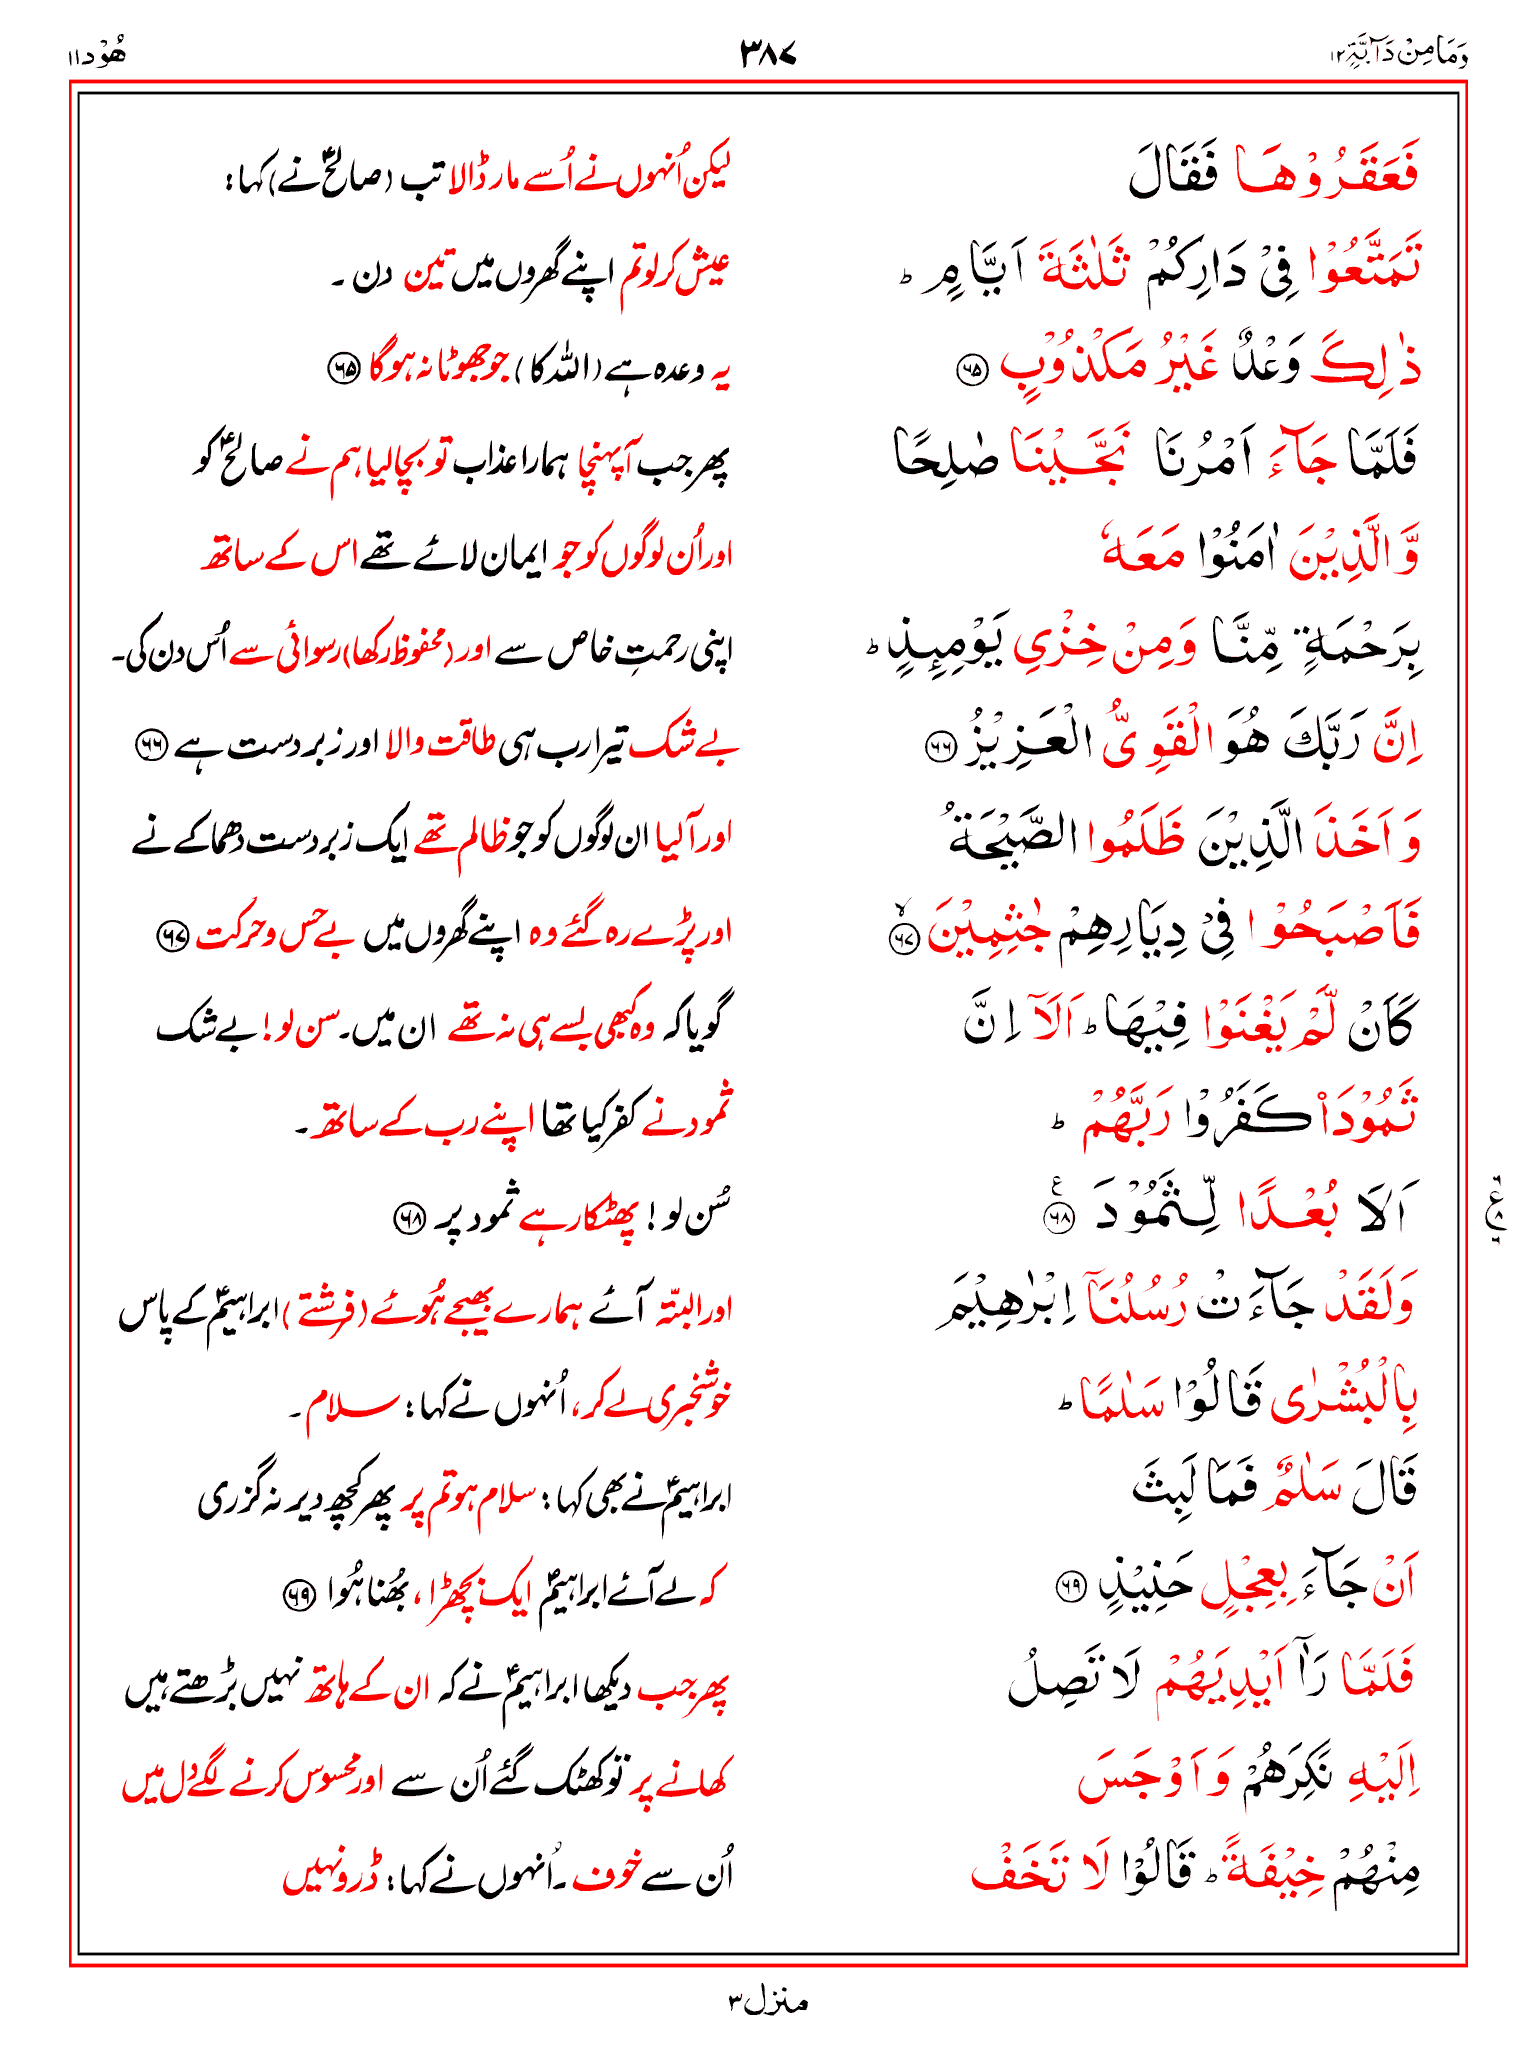 وَمَا مِنْ دَآبَّۃٍ ۱۲ ۳۸۷ ھُوْد ۱۱
فَعَقَرُوْهَا فَقَالَ لیکن اُنہوں نے اُسے مار ڈالا تب (صالحؑ نے) کہا:
تَمَتَّعُوْا فِیْ دَارِكُمْ ثَلٰثَةَ اَیَّامٍ ؕ عیش کرلو تم اپنے گھروں میں تین دن ۔
ذٰلِكَ وَعْدٌ غَیْرُ مَكْذُوْبٍ ۶۵ یہ وعدہ ہے (اللہ کا) جو جھوٹا نہ ہوگا ۶۵
فَلَمَّا جَآءَ اَمْرُنَا نَجَّیْنَا صٰلِحًا پھر جب آپہنچا ہمارا عذاب تو بچالیا ہم نے صالحؑ کو
وَّ الَّذِیْنَ اٰمَنُوْا مَعَهٗ اور اُن لوگوں کو جو ایمان لائے تھے اس کے ساتھ
بِرَحْمَةٍ مِّنَّا وَمِنْ خِزْیِ یَوْمِىِٕذٍ ؕ اپنی رحمتِ خاص سے اور (محفوظ رکھا) رسوائی سے اُس دن کی۔
اِنَّ رَبَّكَ هُوَ الْقَوِیُّ الْعَزِیْزُ ۶۶ بے شک تیرا رب ہی طاقت والا اور زبردست ہے ۶۶
وَ اَخَذَ الَّذِیْنَ ظَلَمُوا الصَّیْحَةُ اور آلیا ان لوگوں کو جو ظالم تھے ایک زبردست دھماکے نے
فَاَصْبَحُوْا فِیْ دِیَارِهِمْ جٰثِمِیْنَ ۙ۶۷ اور پڑے رہ گئے وہ اپنے گھروں میں بے حس و حرکت ۶۷
كَاَنْ لَّمْ یَغْنَوْا فِیْهَا ؕ اَلَاۤ اِنَّ گویا کہ وہ کبھی بسے ہی نہ تھے ان میں۔ سن لو! بے شک
ثَمُوْدَا۠ كَفَرُوْا رَبَّهُمْ ؕ ثمود نے کفر کیا تھا اپنے رب کے ساتھ ۔
اَلَا بُعْدًا لِّثَمُوْدَ ۶۸ ع سُن لو! پھٹکار ہے ثمود پر ۶۸
وَلَقَدْ جَآءَتْ رُسُلُنَاۤ اِبْرٰهِیْمَ اور البتہ آئے ہمارے بھیجے ہُوئے (فرشتے) ابراہیمؑ کے پاس
بِالْبُشْرٰی قَالُوْا سَلٰمًا ؕ خوشخبری لے کر، اُنہوں نے کہا: سلام ۔
قَالَ سَلٰمٌ فَمَا لَبِثَ ابراہیمؑ نے بھی کہا: سلام ہو تم پر پھر کچھ دیر نہ گزری
اَنْ جَآءَ بِعِجْلٍ حَنِیْذٍ ۶۹ کہ لے آئے ابراہیمؑ ایک بچھڑا، بھُنا ہُوا ۶۹
فَلَمَّا رَاٰۤ اَیْدِیَهُمْ لَا تَصِلُ پھر جب دیکھا ابراہیمؑ نے کہ ان کے ہاتھ نہیں بڑھتے ہیں
اِلَیْهِ نَكِرَهُمْ وَ اَوْجَسَ کھانے پر تو کھٹک گئے اُن سے اور محسوس کرنے لگے دل میں
مِنْهُمْ خِیْفَةً ؕ قَالُوْا لَا تَخَفْ اُن سے خوف ۔ اُنہوں نے کہا: ڈرو نہیں
منزل ۳